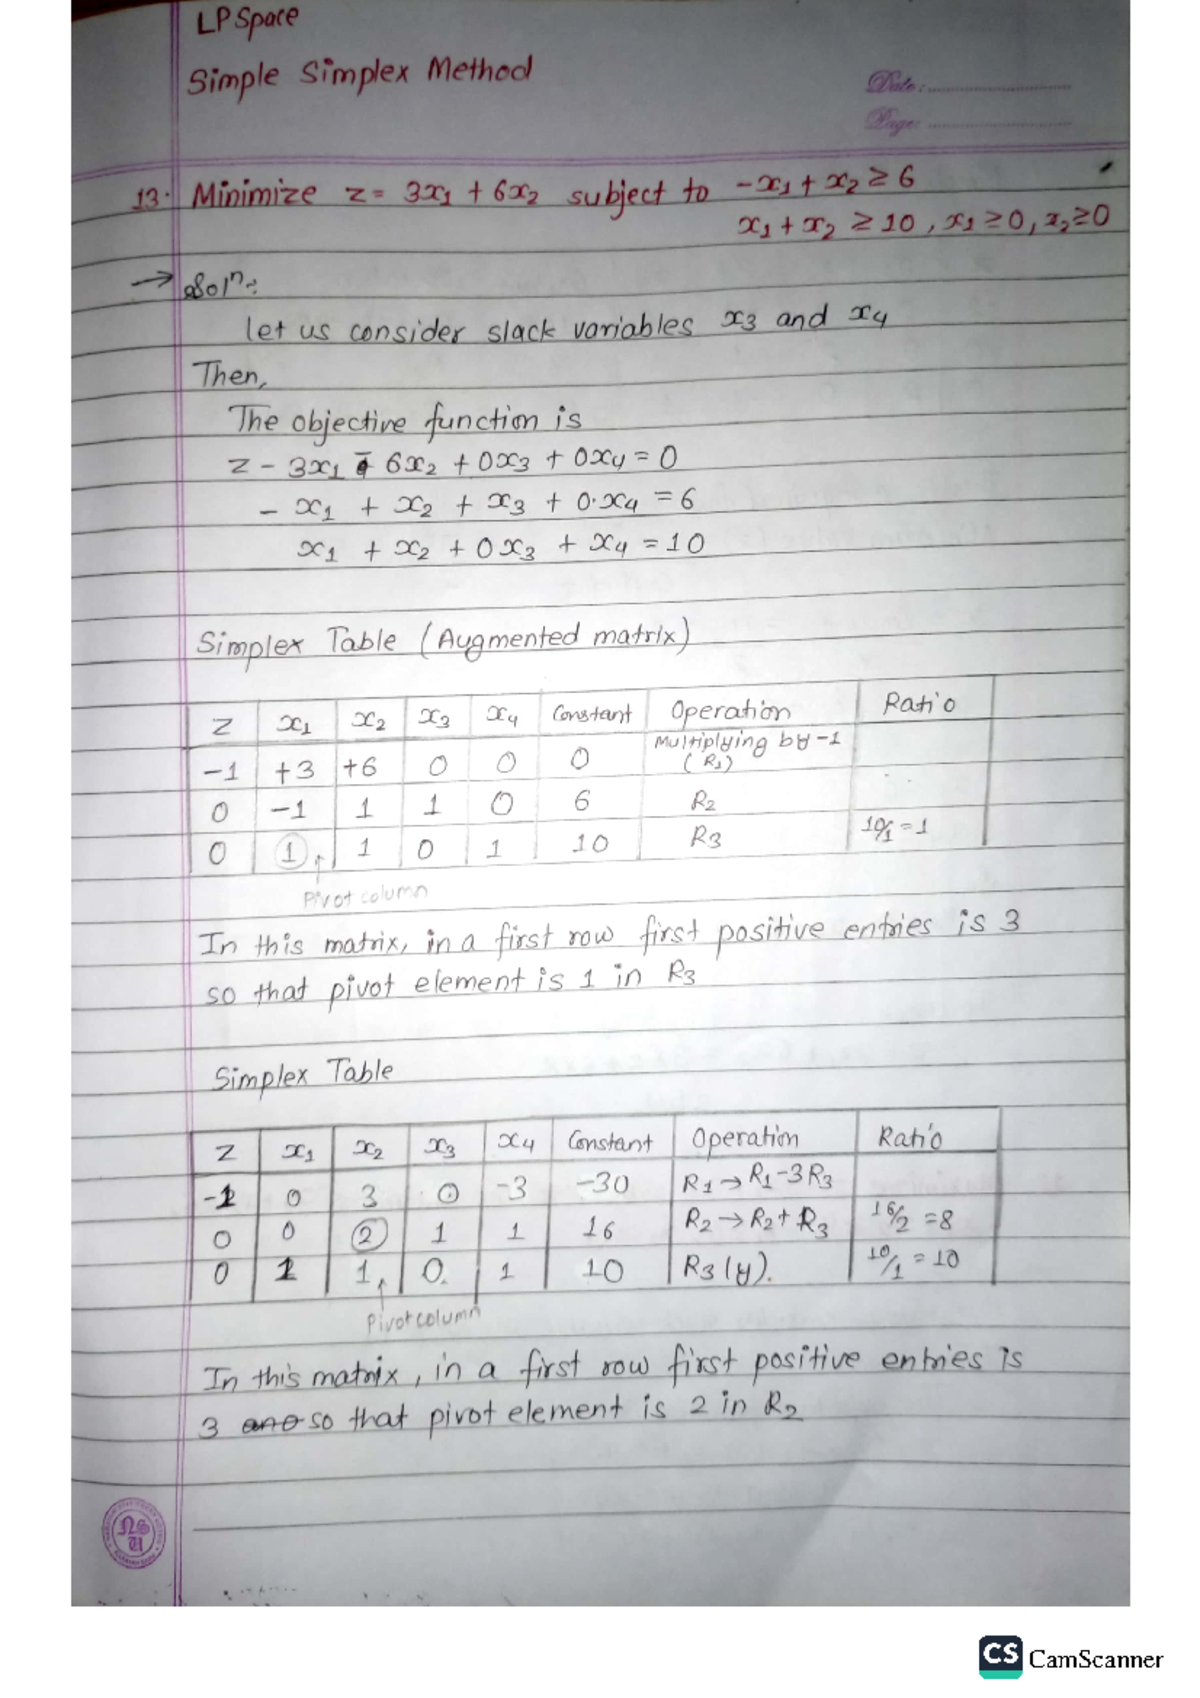 LP Space
Simple Simplex Method
Date:
Page:
13. Minimize z = 3x₁ + 6x₂ subject to -x₁ + x₂ ≥ 6
x₁ + x₂ ≥ 10 , x₁ ≥ 0, x₂ ≥ 0
→ Solⁿ:
let us consider slack variables x₃ and x₄
Then,
The objective function is
z - 3x₁ - 6x₂ + 0x₃ + 0x₄ = 0
- x₁ + x₂ + x₃ + 0·x₄ = 6
x₁ + x₂ + 0x₃ + x₄ = 10
Simplex Table (Augmented matrix)
z x₁ x₂ x₃ x₄ Constant Operation Ratio
-1 +3 +6 0 0 0 Multiplying by -1 (R₁)
0 -1 1 1 0 6 R₂
0 1 1 0 1 10 R₃ 10/1 = 1
Pivot column
In this matrix, in a first row first positive entries is 3
so that pivot element is 1 in R₃
Simplex Table
z x₁ x₂ x₃ x₄ Constant Operation Ratio
-1 0 3 0 -3 -30 R₁ → R₁ - 3R₃
0 0 2 1 1 16 R₂ → R₂ + R₃ 16/2 = 8
0 1 1 0 1 10 R₃ (y). 10/1 = 10
Pivot column
In this matrix, in a first row first positive entries is
3 so that pivot element is 2 in R₂
NSU
CS CamScanner